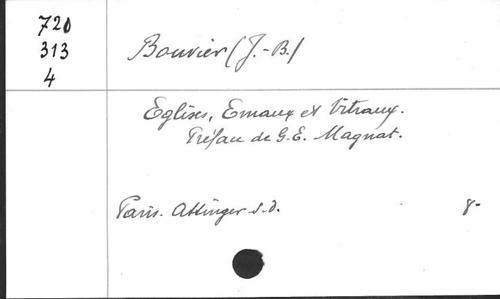 720
313
4
Bouvier (J.-B.)
Eglises, Emaux et Vitraux.
Préface de G.E. Magnat.
Paris. Attinger s.d. 8-